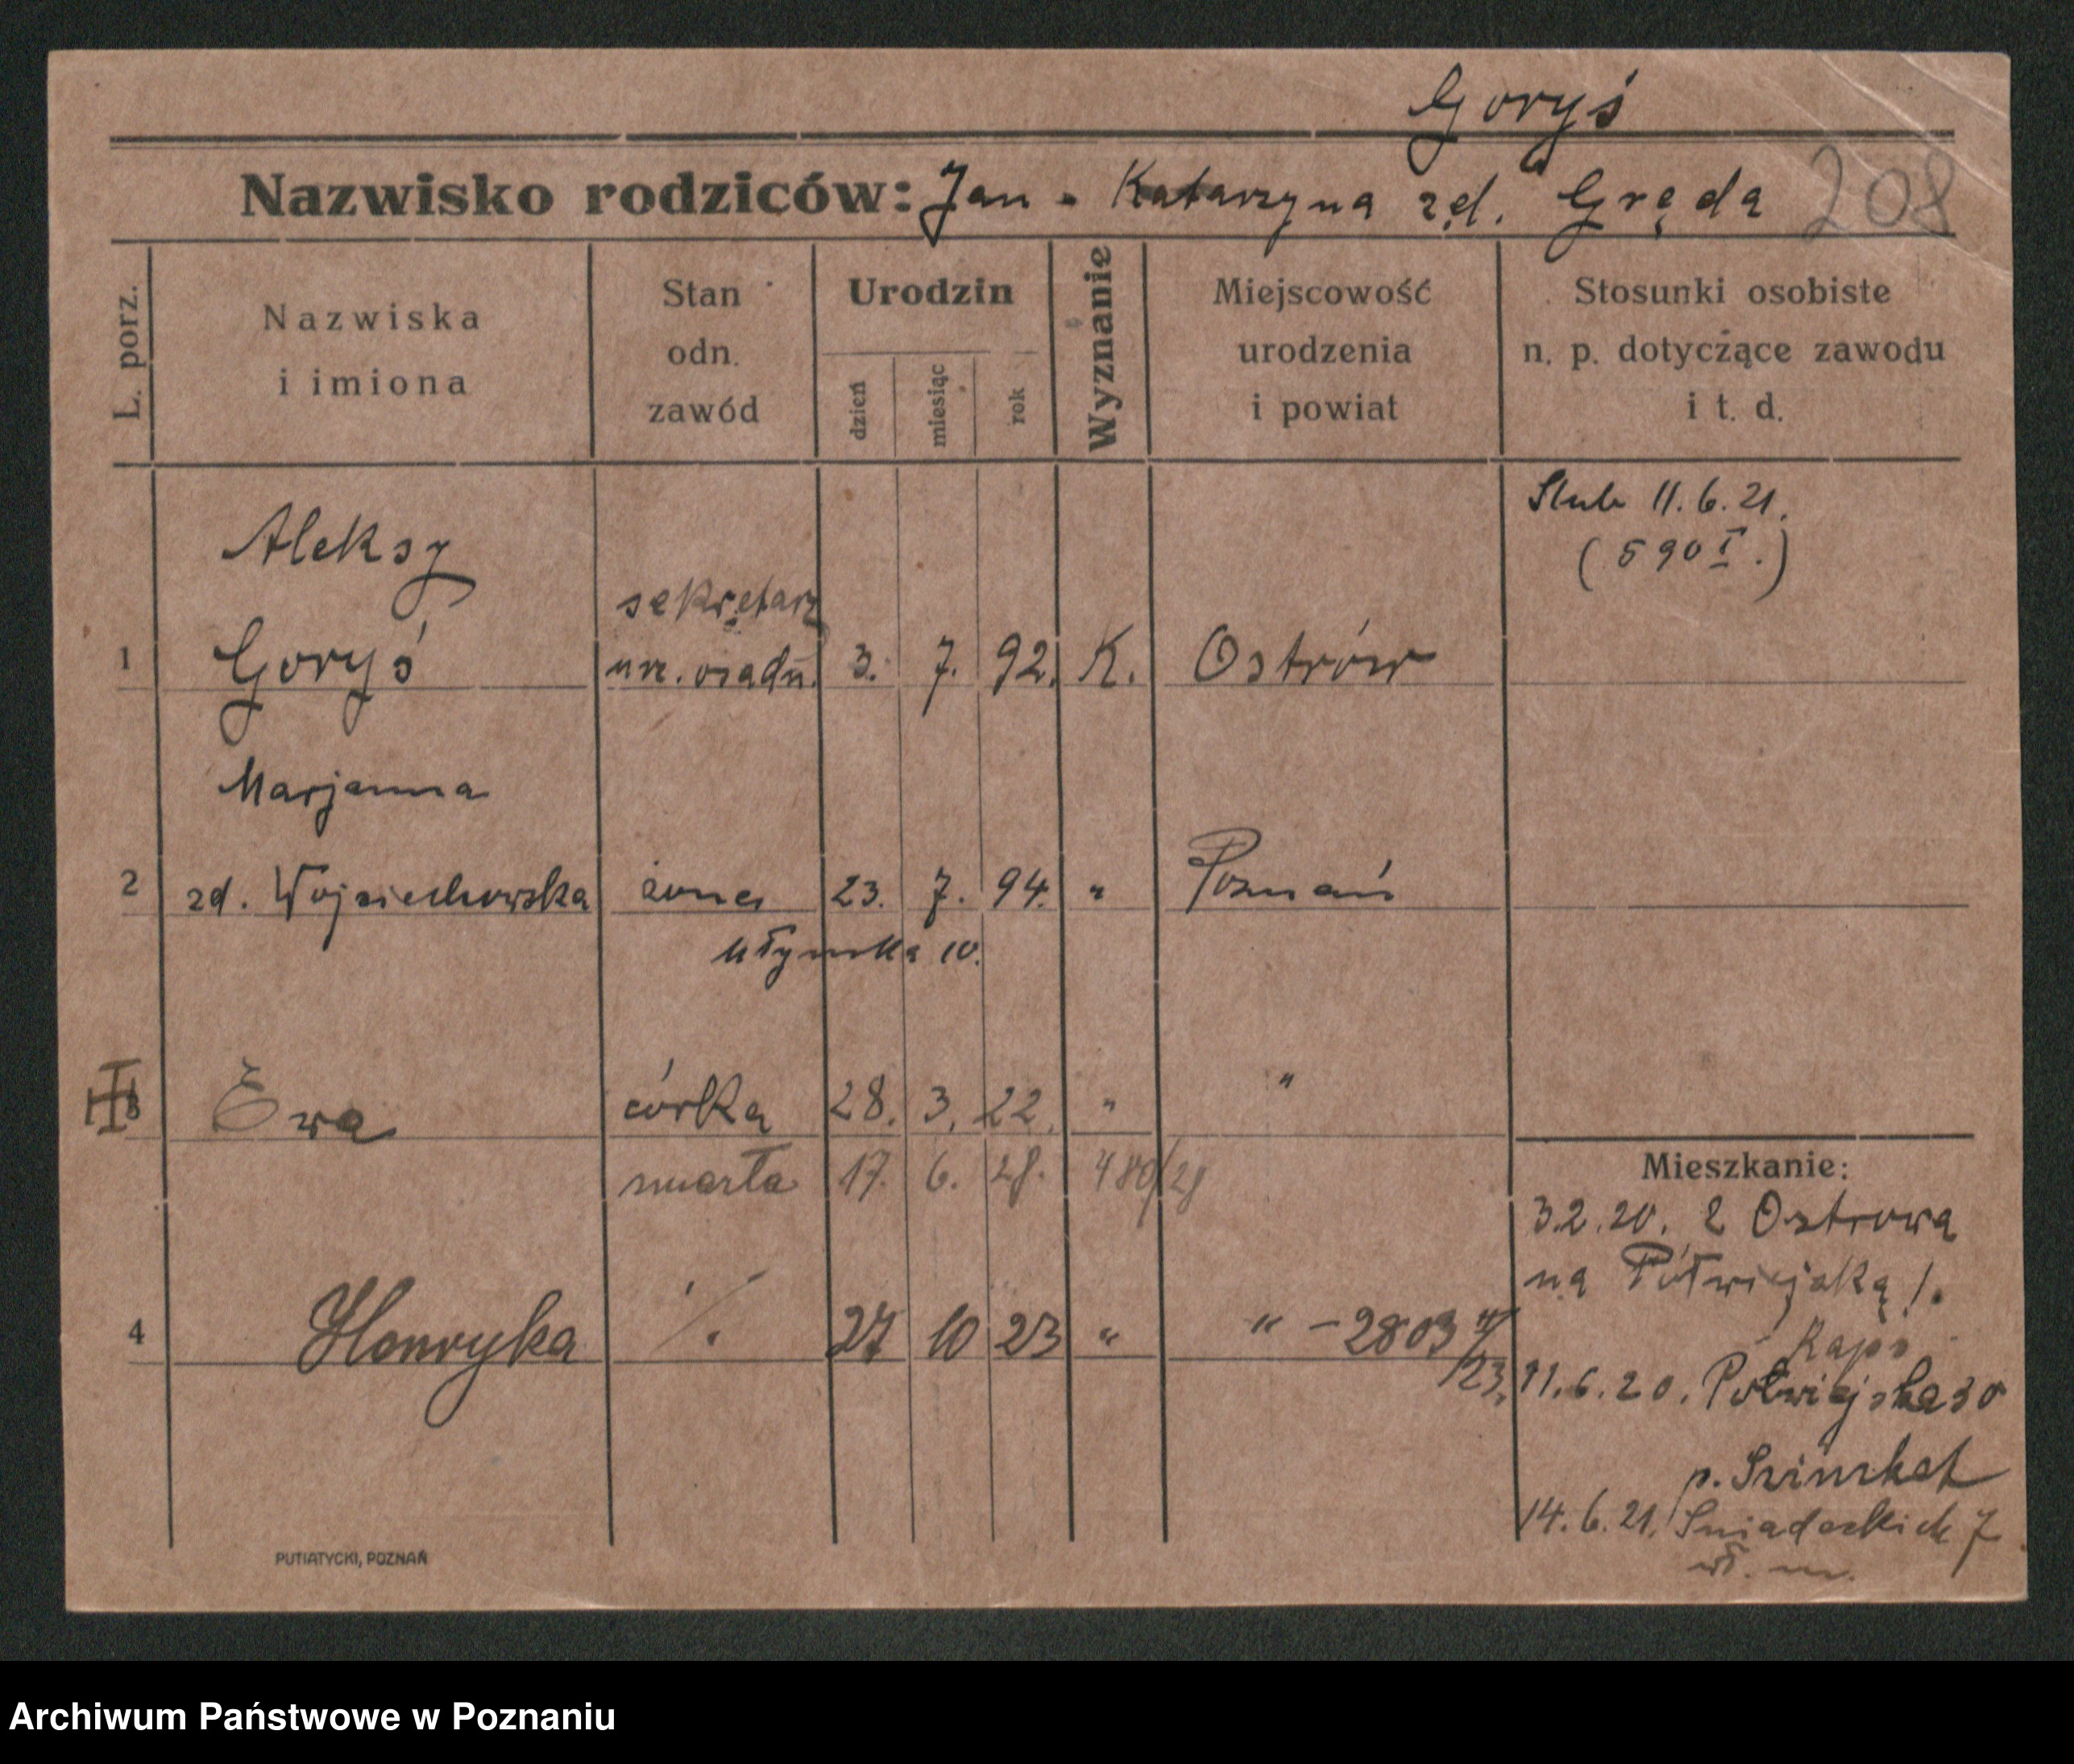 Goryś
Nazwisko rodziców: Jan - Katarzyna zd. Gręda 208
L. porz.
Nazwiska
i imiona
Stan
odn.
zawód
Urodzin
dzień
miesiąc
rok
Wyznanie
Miejscowość
urodzenia
i powiat
Stosunki osobiste
n. p. dotyczące zawodu
i t. d.
Slub 11.6.21.
(590 I.)
Aleksy
sekretarz
1 Goryś urz. osadn. 3. 7. 92. K. Ostrów
Marjanna
2 zd. Wojciechowska żona 23. 7. 94. " Poznań
Młyńska 10.
3 Ewa córka 28. 3. 22. " "
zmarła 17. 6. 28. 480/28
4 Henryka ./. 27 10 23 " " - 2803 IV/23.
Mieszkanie:
3.2.20. z Ostrowa
na Półwiejską 1.
Raps
11.6.20. Półwiejska 30
p.
14.6.21. Sniadeckich 7
wł. m.
PUTIATYCKI, POZNAŃ
Archiwum Państwowe w Poznaniu